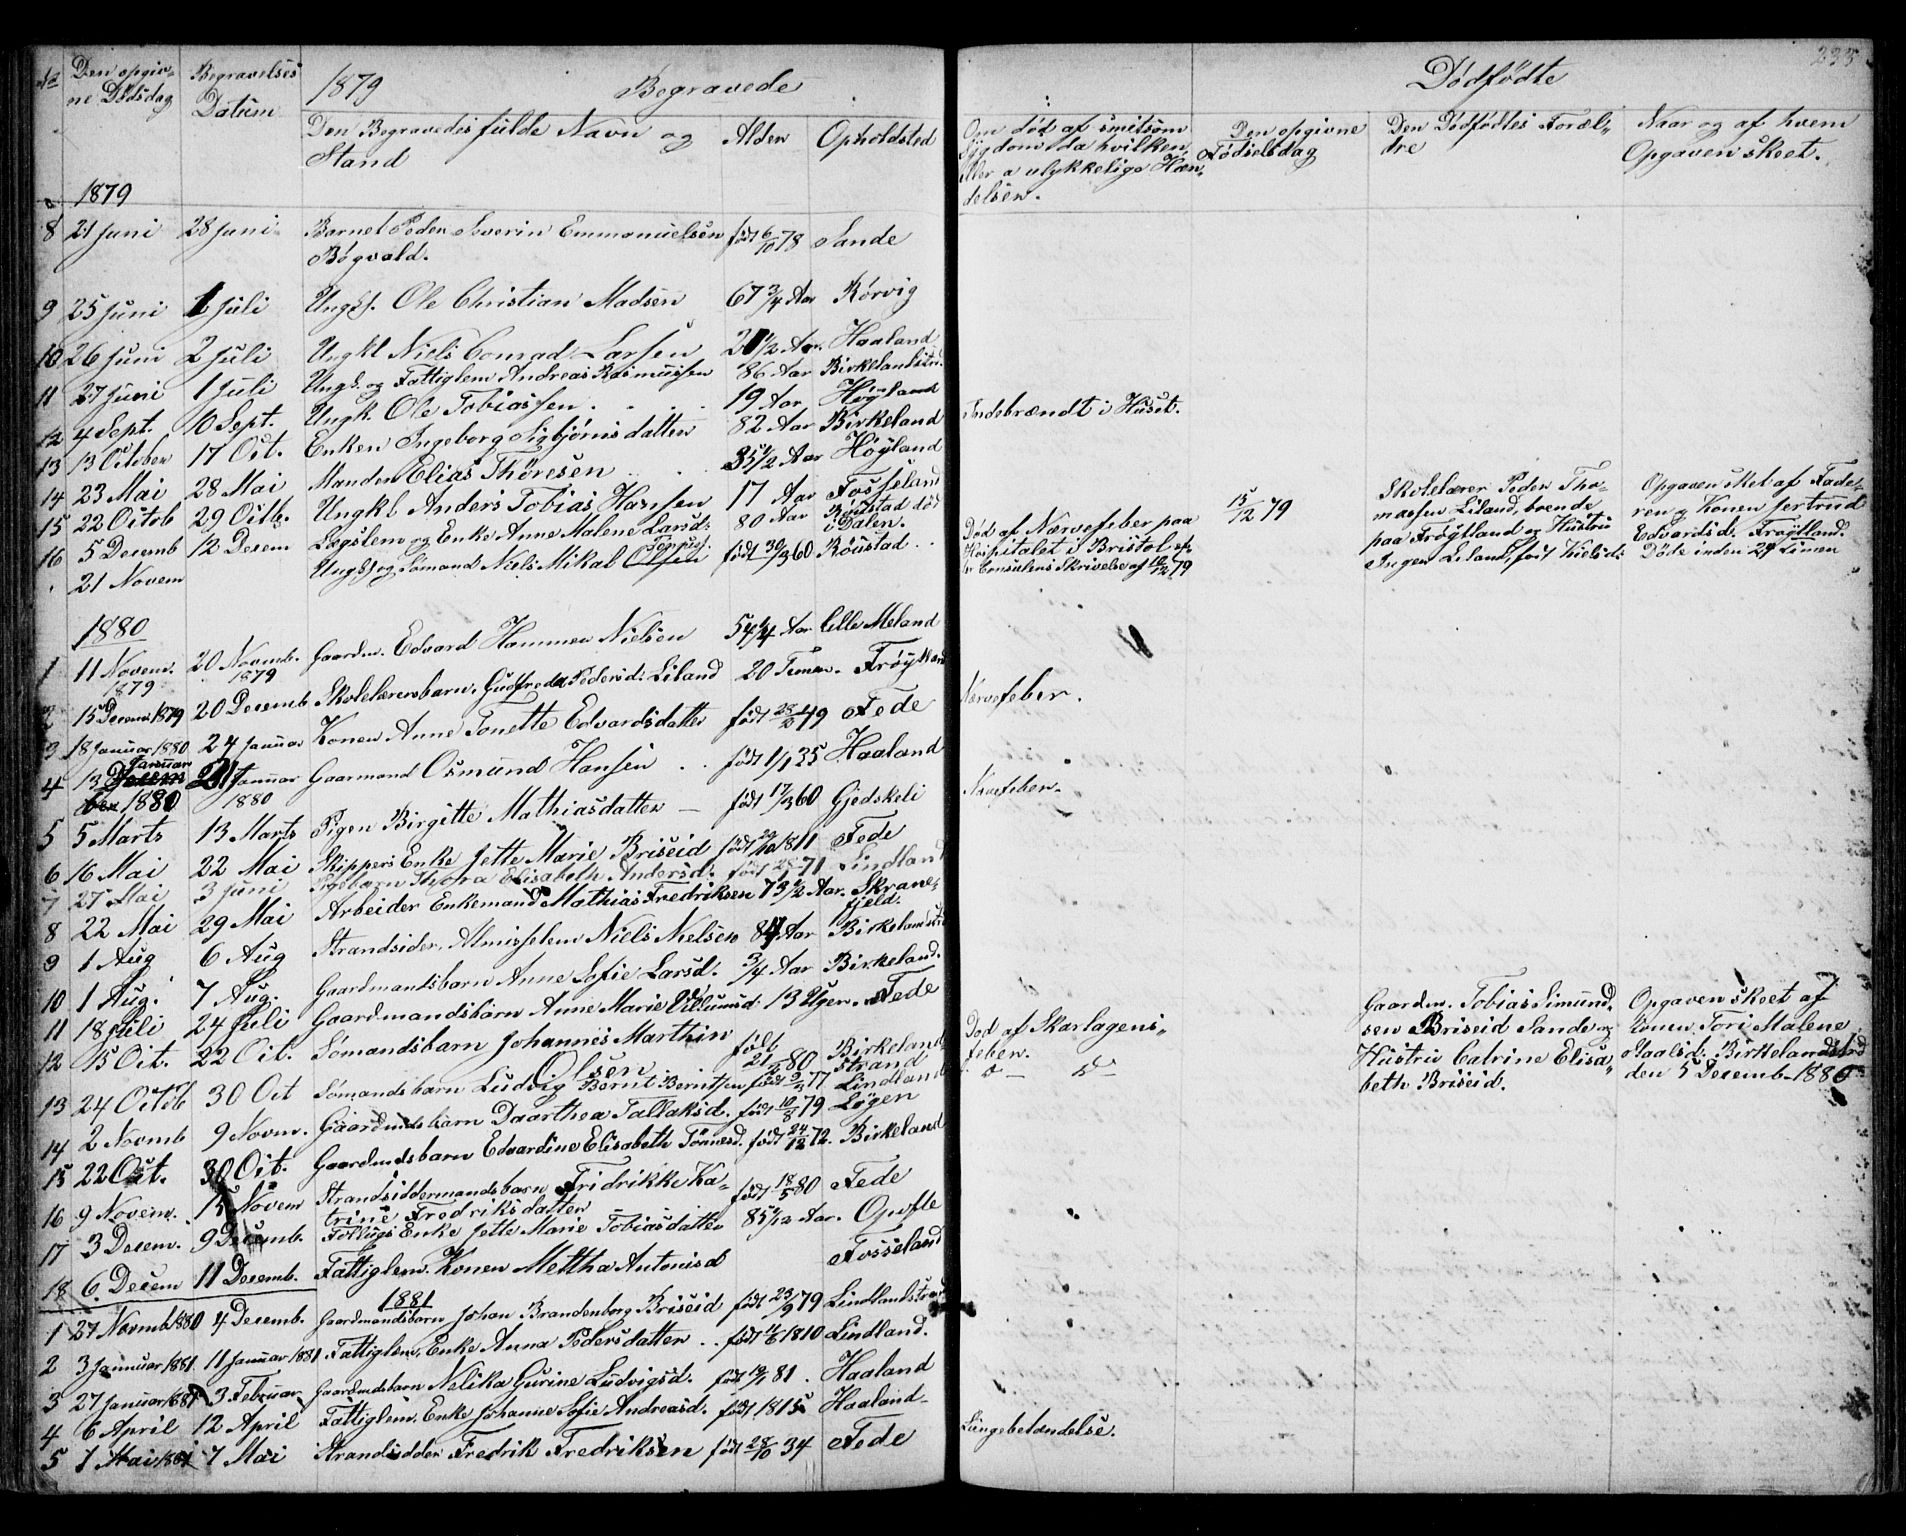 No Den opgiv- Begravelses 1879 Begravede
ne Dødsdag Datum
Den Begravedes fulde Navn og Alder Opholdsted
Stand
1879
8 21 Juni 28 Juni Barnet Peder Severin Emmanuelsen født 6/10 78 Sande
Bøgvald.
9 25 Juni 1 Juli Ungk. Ole Christian Madsen 67 3/4 Aar Rørvig
10 26 Juni 2 Juli Ungkl Niels Conrad Larsen Aar. Haaland
11 27 Juni 1 Juli Ungk. og Fattiglem Andreas Rasmussen 86 Aar Birkelandstrd.
12 4 Sept. 10 Sept. Ungk. Ole Tobiassen . . . . 19 Aar Høyland
13 13 October 17 Oct. Enken Ingeborg Sigbjørnsdatter 82 Aar Birkeland
14 23 Mai 28 Mai Manden Elias Thoresen . . . 35 1/2 Aar Høyland
15 22 Octob 29 Octb. Ungkl Anders Tobias Hansen 17 Aar Fosseland
16 5 Decemb 12 Decem Lægslem og Enke Anne Malene Larsd: 80 Aar Røiistad død i Dalen.
. 21 Novem Ungk og Sømand Niels Mikal Olsen født 30/3 60 Røustad . .
1880
1 11 Novem. 1879 20 Novmb. 1879 Gaardm. Edvard Hammer Nielsen 54 1/4 Aar Lille Meland
2 15 Decem 1879 20 Decemb Skolelærersbarn. Gudfreda Pedersd: Liland 20 Timer. Frøytland
3 18 Januar 1880 24 Januar Konen Anne Tonette Edvardsdatter født 28/10 49 Fede
4 13 Januar 1880 21 Januar 1880 Gaarmand Osmund Hansen . . født 1/1 35 Haaland
5 5 Marts 13 Marts Pigen Birgitte Mathiasdatter — født 17/3 60 Gjedskeli
6 16 Mai 22 Mai Skippers Enke Jette Marie Briseid født 29/10 1811 Fede
7 27 Mai 3 Juni Pigebarn Thora Elisabeth Andersd. født 71 Lindland
8 22 Mai 29 Mai Arbeider Enkemand Mathias Fredriksen 73 1/2 Aar. Skrane-
fjeld.
9 1 Aug 6 Aug Strandsider, Almisselem Niels Nielsen 84 Aar Birkelandstrd
10 1 Aug. 7 Aug. Gaardmandsbarn Anne Sofie Larsd. 3/4 Aar Birkeland.
11 18 Juli 24 Juli Gaardmandsbarn Anne Marie Villumsd: 13 Uger. Fede
12 15 Oct. 22 Oct. Sømandsbarn Johannes Marthin Olsen født 21/ 80 Birkeland
strand
13 24 Octob 30 Oct Sømandsbarn Ludvig Bernt Berntsen født 77 Lindland
14 2 Novmb 9 Novm. Gaardmdsbarn Daarthea Tallaksd. født 10/8 79 Løgen
15 22 Oct. 30 Oct. Gaardmdsbarn Edvardine Elisabeth Tønnesd. født 24/12 72. Birkeland
16 9 Novem. 15 Novem Strandsiddermandsbarn Fridrikke Ka- født 18/5 80 Fede
trine Fredriksdatter
17 3 Decem. 9 Decemb. Enke Jette Marie Tobiasdatter 85 Aar. Opofte
18 6. Decem 11 Decemb. Fattiglem. Konen Mettha Antonisd Fosseland
1881
1 27 Novmb 1880 4 Decemb. Gaardmandsbarn Johan Brandenborg Briseid født 23/9 79 Lindlandstrand
2 3 Januar 1881. 11 Januar 1881 Fattiglem, Enke Anna Pedersdatter . . født 11/6 1810 Lindland.
3 27 Januar 1881 3 Februar Gaardmdsbarn Nelika Gurine Ludvigsd. født 81 . Haaland
4 6 April 12 April Fattiglem. Enke Johanne Sofie Andreasd. født 1815 Haaland
5 1 Mai 1881 7 Mai Strandsidder Fredrik Fredriksen født 28/10 34 Fede
235
Dødfødte
Om død af smitsom Den opgivne Den Dødfødtes Foræl- Naar og af hvem
Sygdom da hvilken Fødselsdag dre Opgaven skeet.
eller a ulykkelige Hæn-
delsen.
Indebrændt i Huset.
Død af Nærvefeber paa
Hospitalet i Bristol ef-
ter Consulens Skrivelse af 10/12 79
15/12 79
Skolelærer Peder Tho-
massen Liland, boende
paa Frøytland og Hustru
Inger Liland, født Kielsd:
Opgaven sket af Fade-
ren og Konen Jertrud
Edvardsd. Frøytland.
Døte inden 24 Timer
Nærvefeber.
Nærvefeber.
Død af Skarlagens-
feber.
do do
Gaardm. Tobias Simund-
sen Briseid Sande og
Hustru Catrine Elisa-
beth Briseid.
Opgaven skeet af
Konen Tori Malene
Birkelandstrd
den 5 Decemb. 1880
Lungebetændelse.